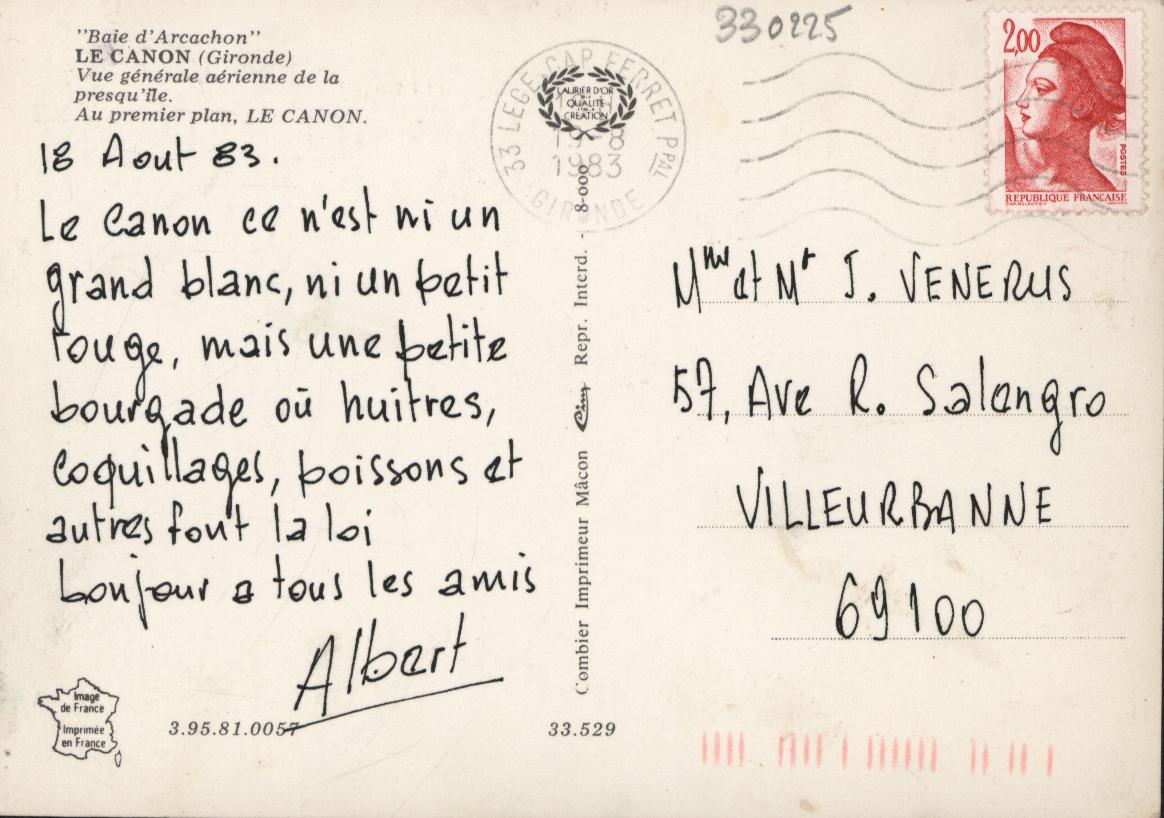 "Baie d'Arcachon"
LE CANON (Gironde)
Vue générale aérienne de la
presqu'île.
Au premier plan, LE CANON.
18 Aout 83.
Le Canon ce n'est ni un
grand blanc, ni un petit
rouge, mais une petite
bourgade où huitres,
coquillages, poissons et
autres font la loi
bonjour a tous les amis
Albert
Image
de France
Imprimée
en France
3.95.81.0057
33.529
Combier Imprimeur Mâcon Cim Repr. Interd. - 8-000
LAURIER D'OR
QUALITÉ
CRÉATION
33 LÈGE-CAP FERRET PPAL
1983
GIRONDE
330225
2,00
POSTES
REPUBLIQUE FRANÇAISE
Mme et Mr J. VENERUS
57, Ave R. Salengro
VILLEURBANNE
69100